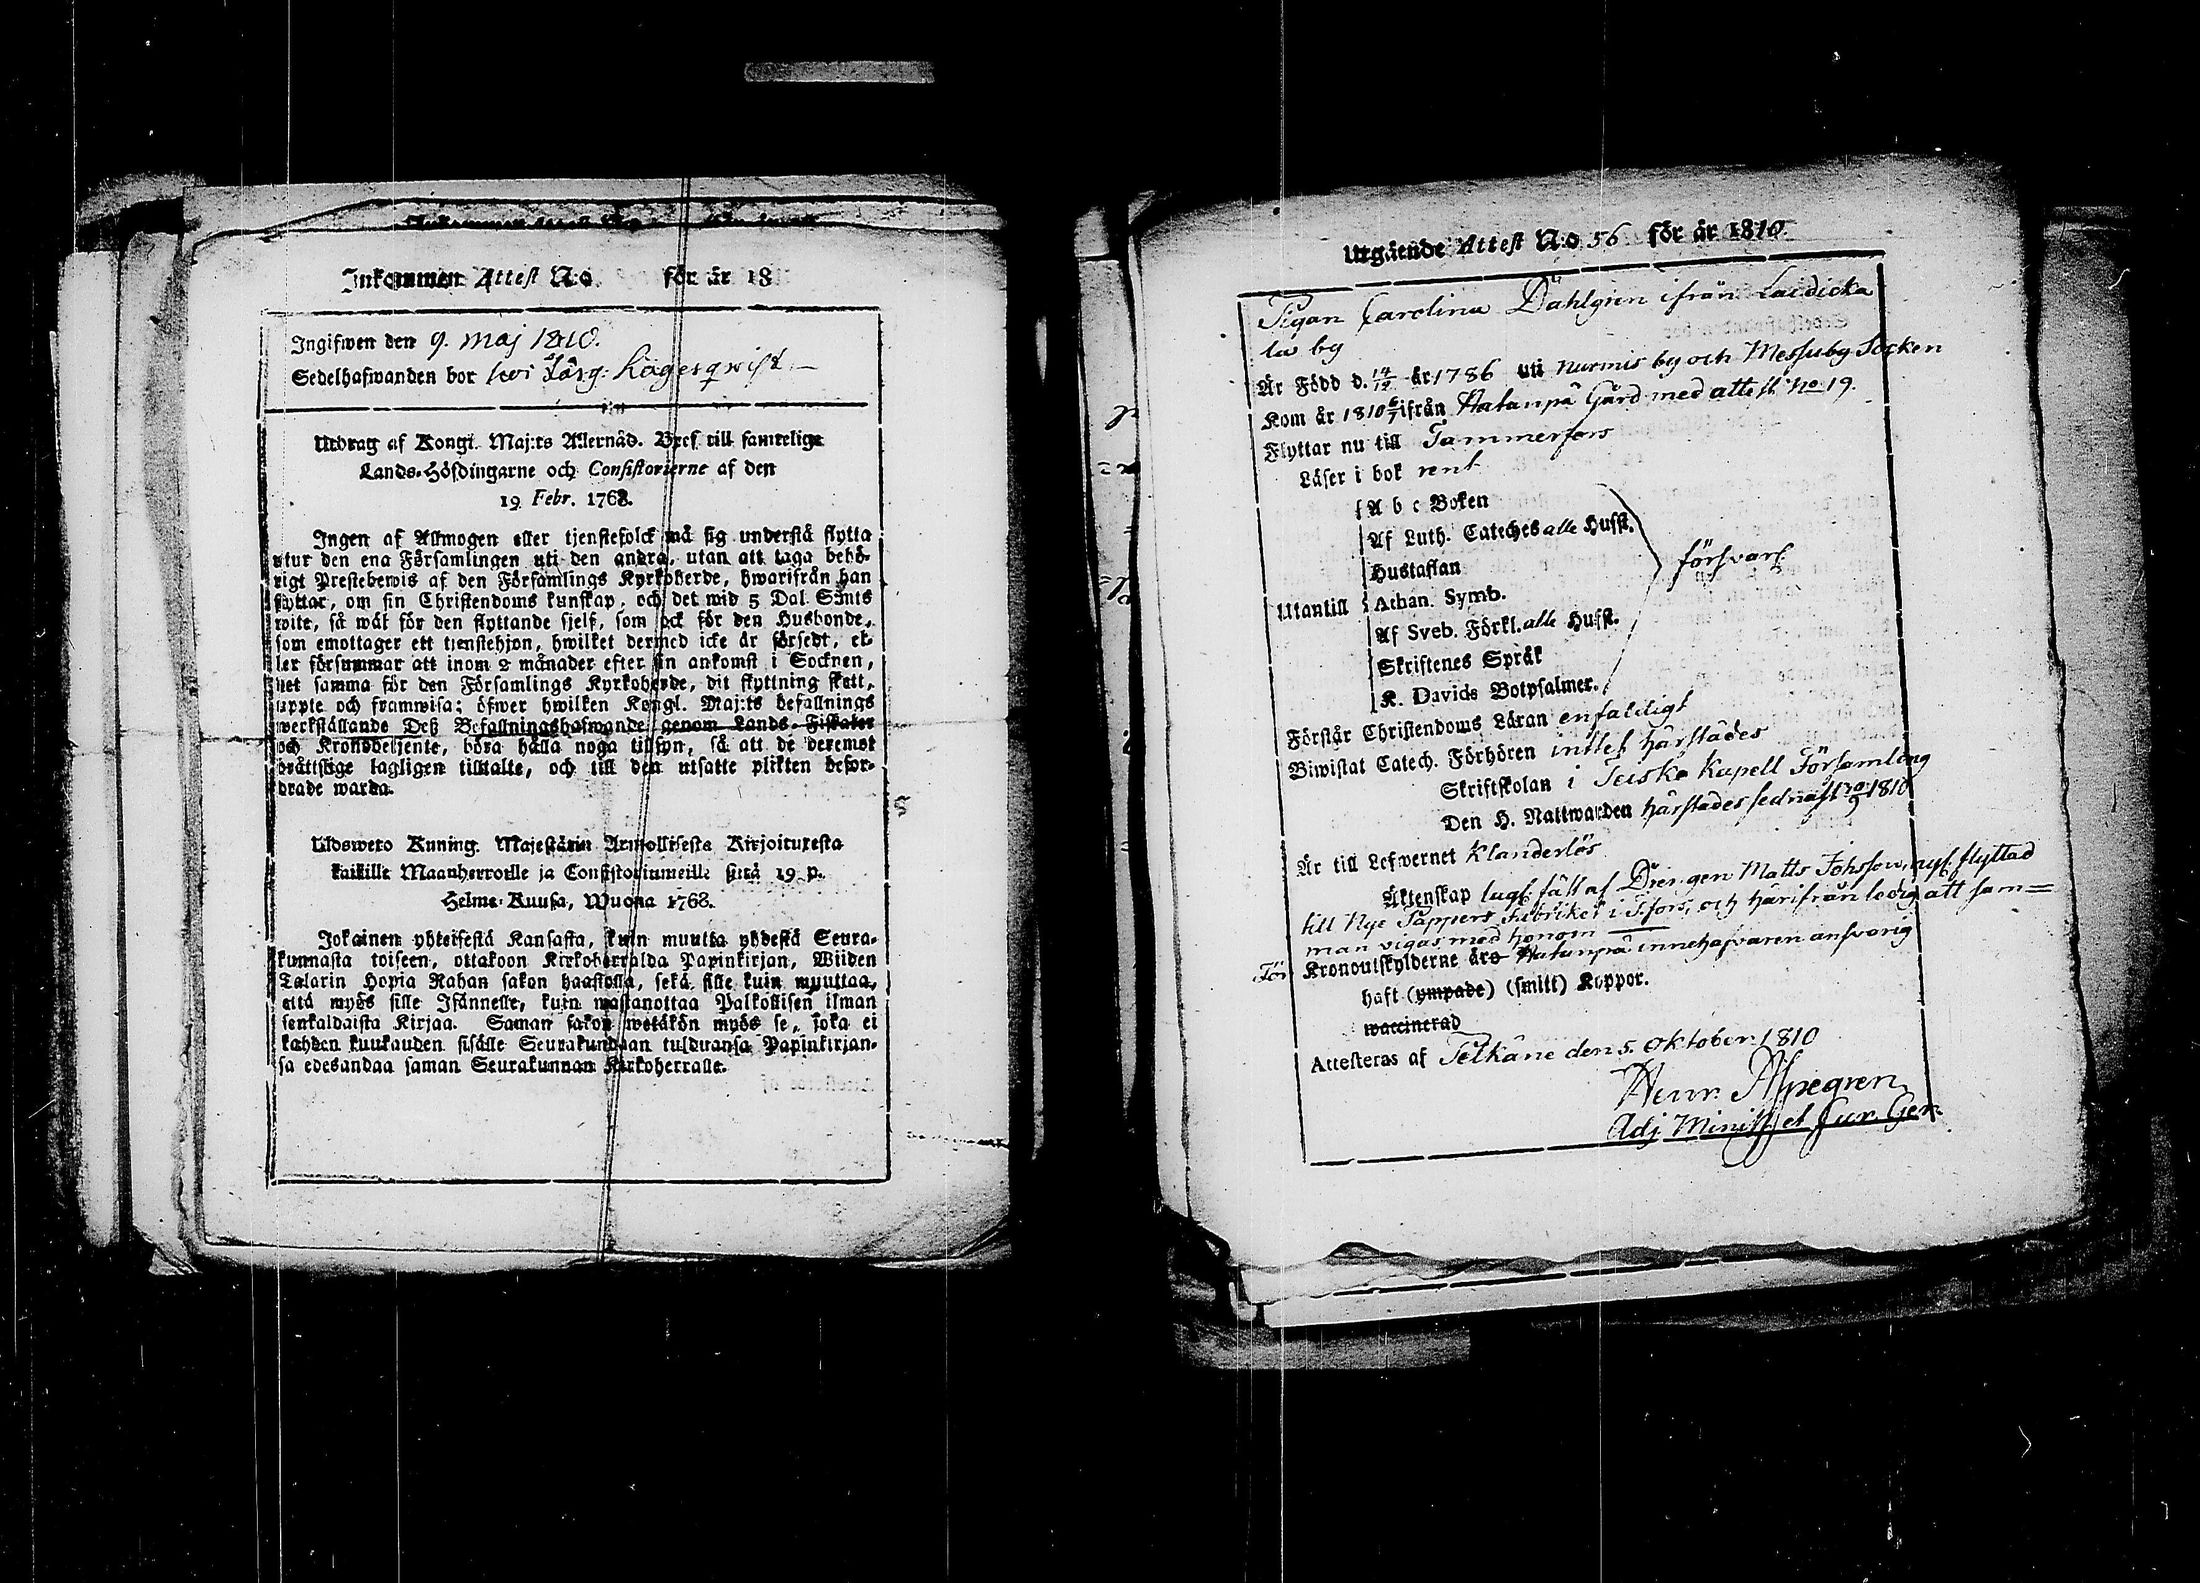 Inkommen Attest N:o för år 18
Ingifwen den 9. Maj 1810.
Sedelhafwanden bor hos Lägerqwist
Utdrag af Kongl. Maj:ts Allernåd. Bref till samtelige
Lands-Höfdingarne och Consistorierne af den
19 Febr. 1768.
Ingen af Allmogen eller tjenstefolck må sig understå flytta
utur den ena Församlingen uti den andra, utan att taga behö-
rigt Prestebewis af den Församlings Kyrkoherde, hwarifrån han
flyttar, om sin Christendoms kunskap, och det wid 5 Dal. S:mts
wite, så wäl för den flyttande sjelf, som ock för den Husbonde,
som emottager ett tjenstehjon, hwilket dermed icke är försedt, el-
ler försummar att inom 2 månader efter sin ankomst i Socknen,
det samma för den Församlings Kyrkoherde, dit flyttning skett,
uppte och framwisa; öfwer hwilken Kongl. Maj:ts befallnings
werkställande Deß Befallningshafwande genom Lands-Fiskaler
och Kronobetjente, böra hålla noga tillsyn, så att de deremot
bråttslige lagligen tilltalte, och till den utsatte plikten befor-
drade warda.
5
Uloswero Kuning. Majestätin Armollisesta Kirjoituxesta
kaikille Maanherroille ja Consistoriumeille siitä 19 p.
Helme-Kuusa, Wuonna 1768.
Jokainen yhteisestä Kansasta, kuin muutta yhdestä Seura-
kunnasta toiseen, ottakoon Kirkoherralda Papinkirjan, Wiiden
Talarin Hopia Rahan sakon haastolla, sekä sille kuin muuttaa,
että myös sille Isännelle, kuin wastanottaa Palkollisen ilman
senkaldaista Kirjaa. Saman sakon wetäkön myös se, joka ei
kahden kuukauden sisälle Seurakundaan tulduansa Papinkirjan-
sa edesandaa saman Seurakunnan Kirkoherralle.
Utgående Attest N:o 56 för år 1810.
Pigan Carolina Dahlgren ifrån Laidicka
la by
Är Född d. 14/12 år 1786 uti Nurmis by och Messuby Socken
Kom år 1810 ifrån Hatanpä Gård med attest No 19.
Flyttar nu till Tammerfors
Läser i bok rent
A b c Boken
Af Luth. Cateches alle Hufst.
Hustaflan
Utantill Athan. Symb. försvarl.
Af Sveb. Förkl. alle Hufst.
Skriftenes Språk
K. Davids Botpsalmer.
Förstår Christendoms Läran enfaldigt
Biwistat Catech. Förhören intet härstädes
Skriftskolan i Teisko Kapell Församling
Den H. Nattwarden härstädes sednast 1810
Är till Lefwernet Klanderlös
Äktenskap lagl. fäst af Drengen Matts Johsson, nyl. flyttad
till Nye Pappers Fabriken i T:fors, och härifrån ledig att sam=
man vigas med honom
För Kronoutskylderne är Hatanpä innehafvaren ansvarig
haft (ympade) (smitt) Koppor.
waccinerad
Attesteras af Pelkäne den 5. Oktober 1810
Henr. Alpegren
Adj. Minist et Cur. Ger.